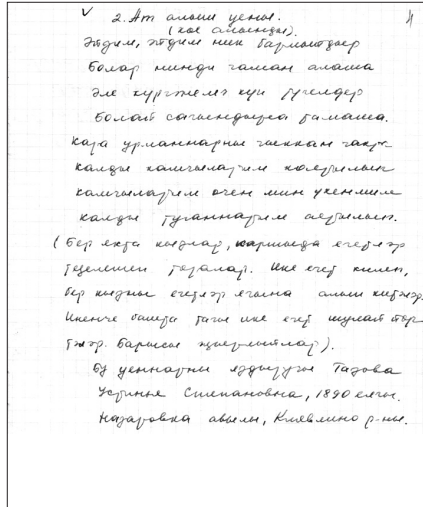 4
2. Ат алыш уены.
(кое алышнды).
Әйдим, әйдим ник бармыйдыер
Болар минди чаман алаша
Әле күргәнемә күп түгелдер
Болай сагындырса ғамаша.
Кара урманнарны чыккан чакта
калды камчыларым
камчыларым өчен мин үкенмим
калды туганнарым аерылып.
(Бер якта кызлар, каршында егетләр
тезелешеп торалар. Ике егет килеп,
бер кызны егетләр ягына алып китәләр.
Икенче башта тагы ике егет шулай
Барысы җыерылалар).
Бу уеннарны яздыручы Тазова
Устинья Степановна, 1890 елгы.
Назаровка авылы, Клявлино р-ны.